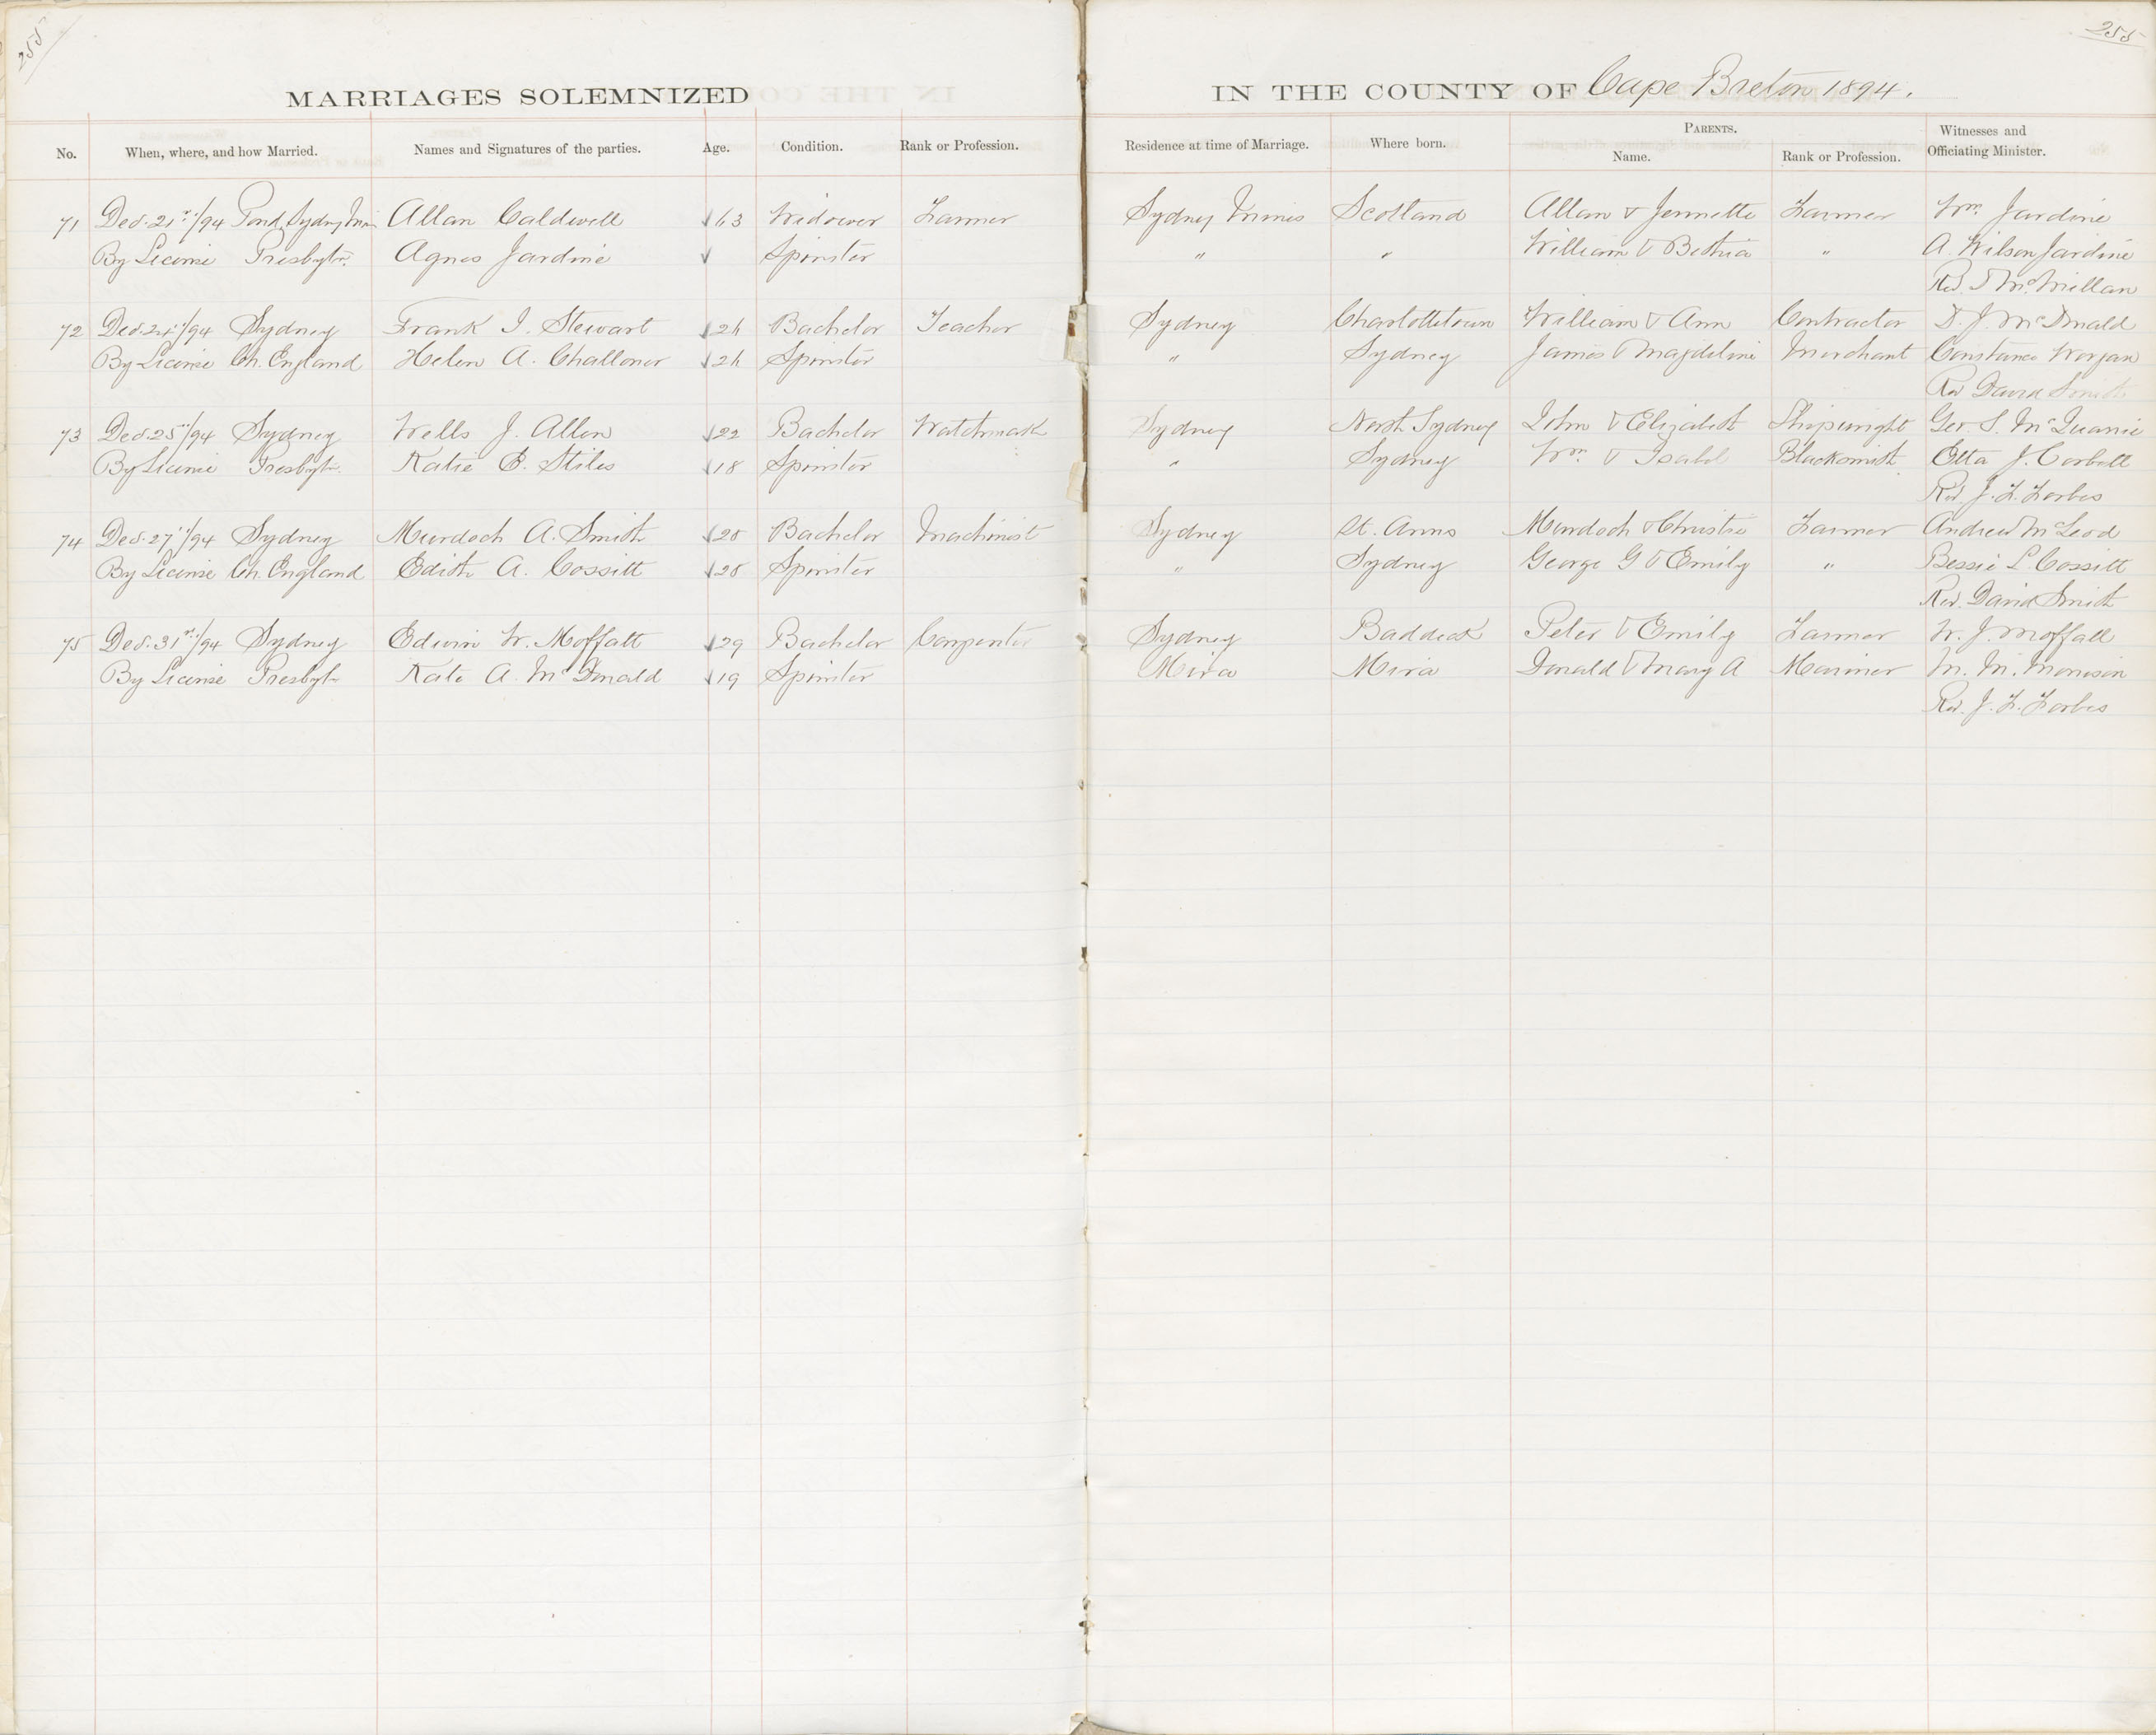 255
255
MARRIAGES SOLEMNIZED IN THE COUNTY OF Cape Breton 1894.
No. When, where, and how Married. Names and Signatures of the parties. Age. Condition. Rank or Profession. Residence at time of Marriage. Where born. PARENTS. Name. Rank or Profession. Witnesses and Officiating Minister.
71 Dec. 21st/94 Pond, Sydney Min Allan Caldwell 63 Widower Farmer Sydney Mines Scotland Allan & Jennette Farmer Wm. Jardine
By License Presbytn. Agnes Jardine Spinster " " William & Bethia " A. Wilson Jardine
Rev. D McMillan
72 Dec. 24/94 Sydney Frank I. Stewart 26 Bachelor Teacher Sydney Charlottetown William & Ann Contractor D. J. McDonald
By License Ch. England Helen A. Challoner 26 Spinster " Sydney James & Magdeline Merchant Constance Worgan
Rev David Smith
73 Dec. 25/94 Sydney Wells J. Allen 22 Bachelor Watchmak Sydney North Sydney John & Elizabeth Shipwright Geo. S. McQuarrie
By License Presbyt. Katie E. Stiles 18 Spinster " Sydney Wm. & Isabel Blacksmith Etta J. Corbett
Rev. J. F. Forbes
74 Dec. 27/94 Sydney Murdoch A. Smith 28 Bachelor Machinist Sydney St. Anns Murdoch & Christie Farmer Andrew McLeod
By License Ch. England Edith A. Cossitt 28 Spinster " Sydney George G & Emily " Bessie L Cossitt
Rev. David Smith
75 Dec. 31st/94 Sydney Edwin W. Moffatt 29 Bachelor Carpenter Sydney Baddeck Peter & Emily Farmer W. J. Moffatt
By License Presbyt Kate A. McDonald 19 Spinster Mira Mira Donald & Mary A Mariner M. M. Morrison
Rev. J. F. Forbes